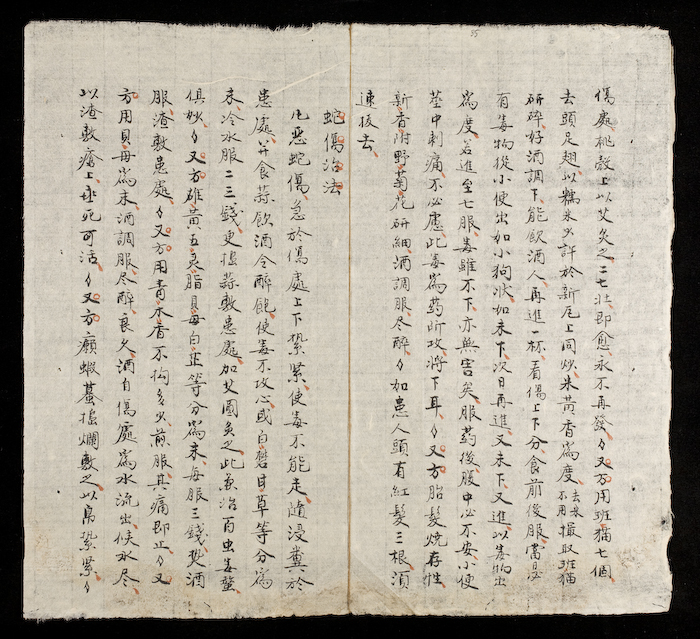 傷處桃殼上以艾灸之二七壯即愈永不再發〻又方用班猫七個
去頭足翅以糯米少許於新瓦上同炒米黃香為度去米不用撮取班猫
研碎好酒調下能飲酒人再進一杯看傷上下分食前後服當日必
有毒物從小便出如小狗狀如未下次日再進又未下又進以毒物出
為度若進至七服毒雖不下亦無害矣服药後腹中必不安小便
莖中刺痛不必慮此毒為药所攻將下耳〻又方胎髮燒存性
新香附野菊花研細酒調服尽醉〻如患人頭有紅髮三根湏
速拔去
蛇傷治法
凡惡蛇傷急於傷處上下紮緊使毒不能走隨浸糞於
患處并食蒜飲酒令醉飽使毒不攻心或白礬甘草等分為
末冷水服二三錢更搗蒜敷患處加艾圓灸之此兼治百虫毒螫
俱妙〻又方雄黃五灵脂貝母白芷等分為末每服三錢熱酒
服渣敷患處〻又方用青木香不拘多少煎服其痛即止〻又
方用貝母為末酒調服尽醉良久酒自傷處為水流出候水尽
以渣敷瘡上垂死可活〻又方癩蝦蟇搗爛敷之以帛紮緊〻
35